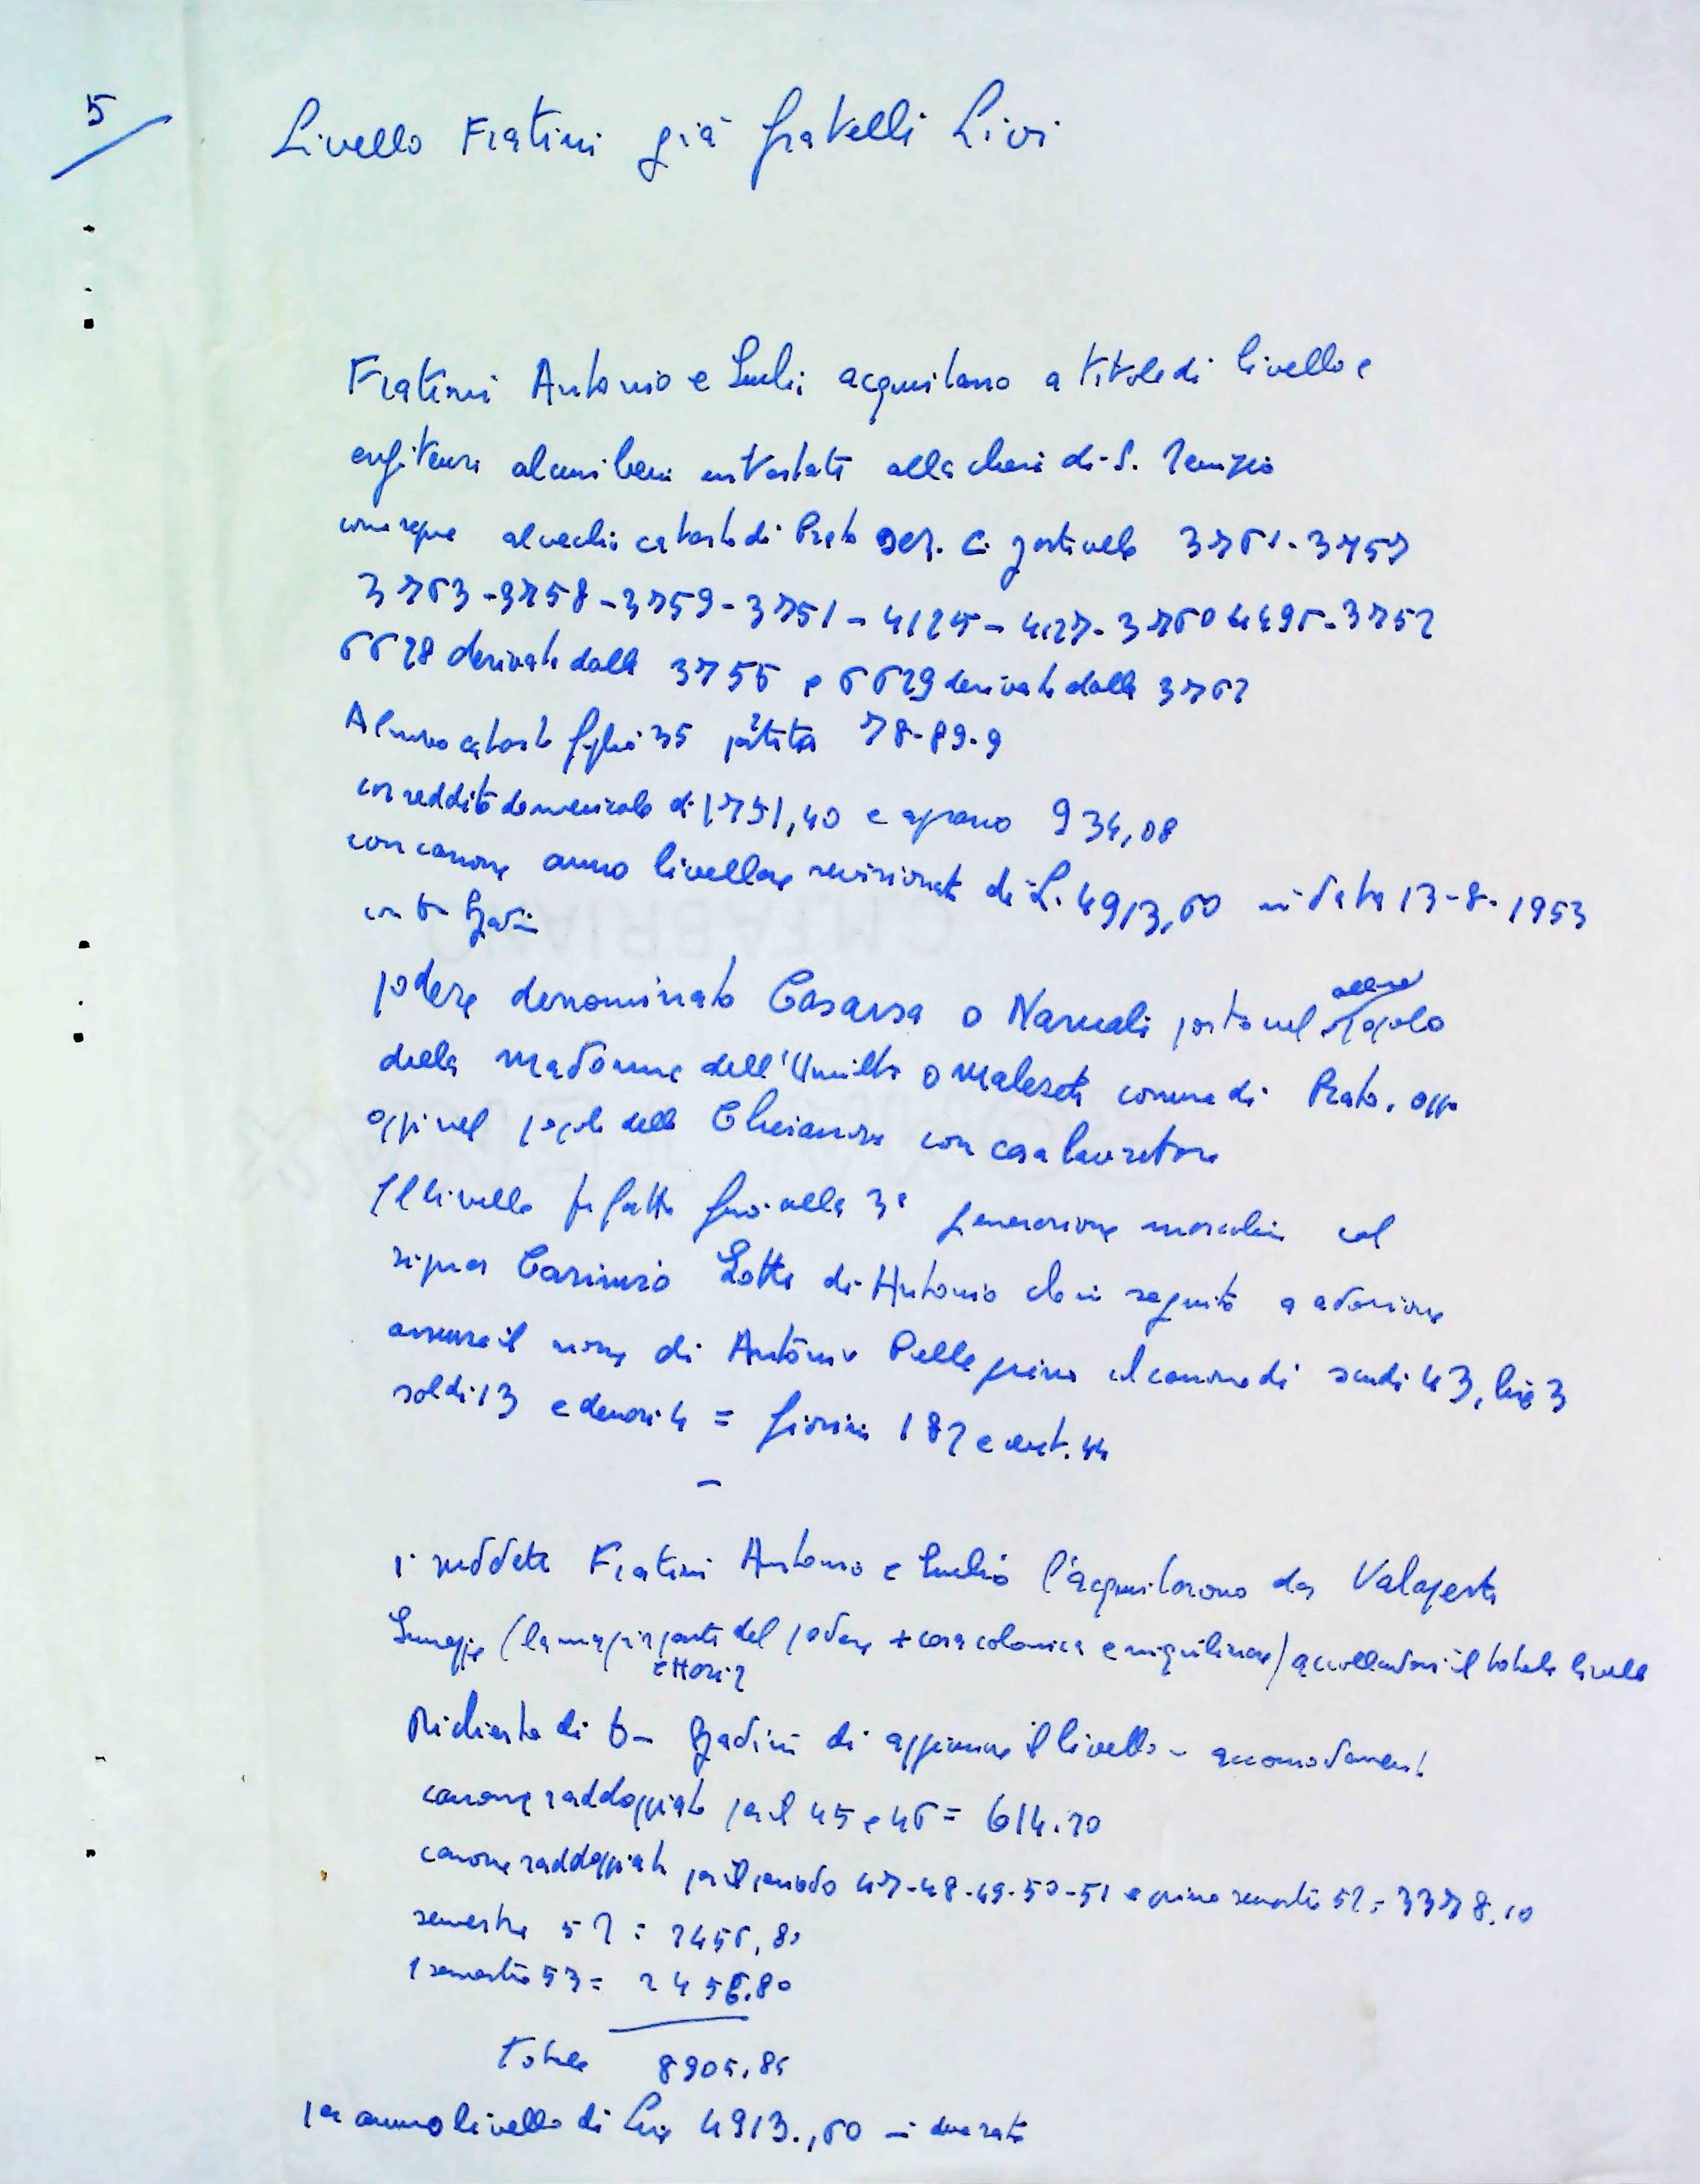 5
Livello Fratini già fratelli Livi
Fratini Antonio e Giulio acquistano a titolo di livello e
enfiteusi alcuni beni intestati alla chiesa di S.
come segue al vecchio catasto di Prato Sez. C. particelle 3761-3757
3763-3758-3759-3751-4125-4127-3760 4496-3752
6628 derivata dalla 3755 e 6629 derivata dalla 3762
Al nuovo catasto foglio 35 78-89-9
con reddito domenicale di 1751,40 e agrario 934,08
con canone annuo livellare revisionato di L. 4913,60 in data 13-8-1953
podere denominato Casarsa o Narnali posto nel allora popolo
della Madonna dell'Umiltà o Maleseti comune di Prato, oggi
oggi nel popolo della Chiesanuova con casa lavoratore
Il livello fu fatto fino alla 3ª generazione mascolina col
signor Casimiro Lotti di Antonio che in seguito a adozione
assunse il nome di Antonio Pellegrino al canone di scudi 43, lire 3
soldi 13 e denari 4 = fiorini 182 e cent. 44
-
i suddetti Fratini Antonio e Giulio l'acquistarono da Valaperti
(la maggior parte del podere + casa colonica e inquilinare) accollandosi il totale livello
ettari 2
Richiesta di di il livello - accomodamento
canone raddoppiato per il 45 e 46 = 614.20
canone raddoppiato per il periodo 47-48-49-50-51 e primo semestre 52 = 3378.10
semestre 52 = 2456,80
1 semestre 53 = 2456.80
totale 8905.85
per annuo livello di Lire 4913.,60 in due rate